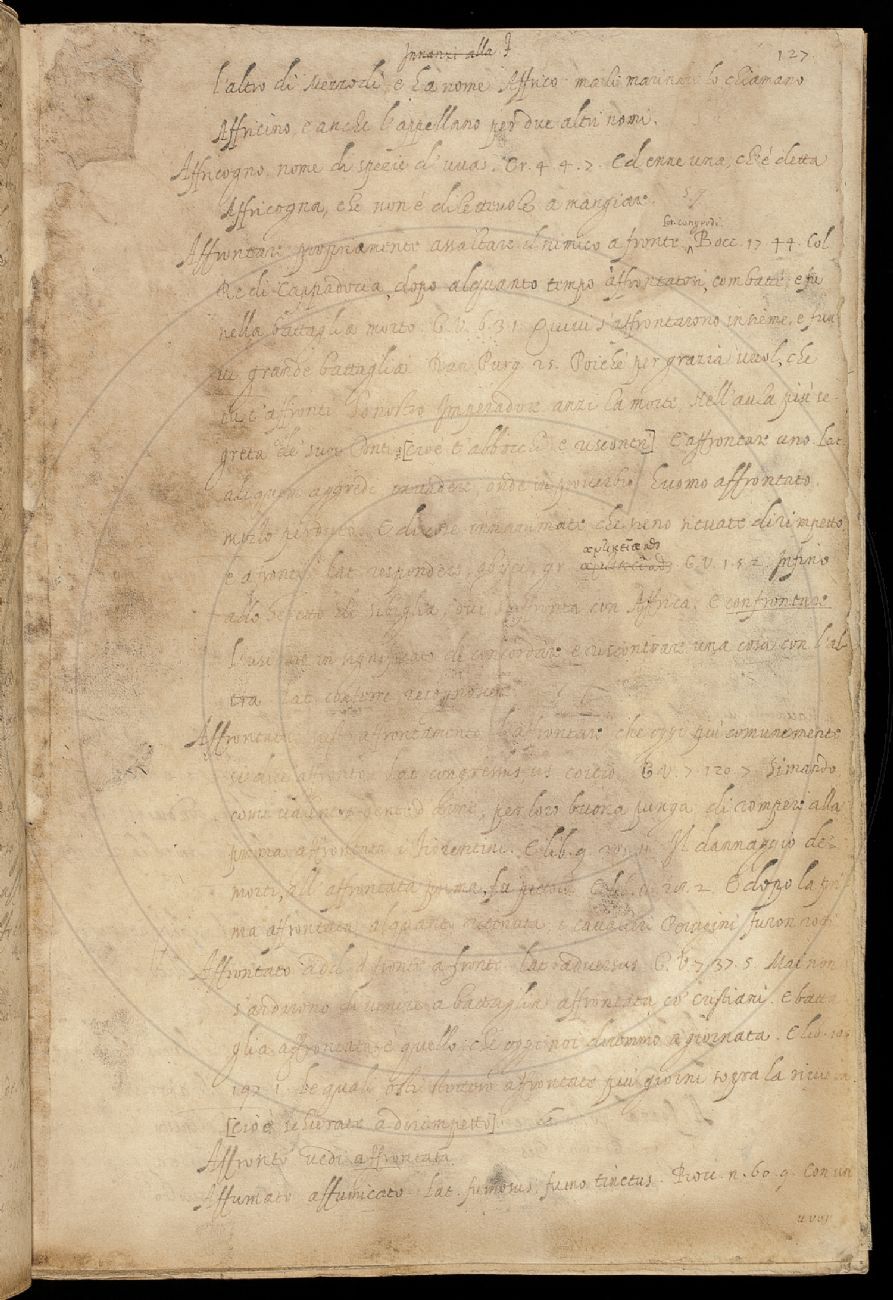 Innanzi alla F
127
l'altro di Mezzodì, e ha nome Affrico ma li marinari lo chiamano
Affricino, e anche l'appellano per due altri nomi.
Affricogno nome di spezie d'uva. Cr. 4. 4. 7. Ed enne una, ch'è detta
Affricogna, che non è dilettevole a mangiare.
Affrontare propriamente assaltare il nimico a fronte Bocc. 17. 44. Col
Re di Cappadocia, dopo alquanto tempo affrontatosi, combatté, e fu
nella battaglia morto. G. V. 6. 31. Quivi s'affrontarono insieme, e fu
vi grande battaglia Dan. Purg. 25. Poiché per grazia vuol, che
tu t'affronti Lo nostro Imperadore anzi la morte, Nell'aula più se-
greta de' suoi Conti [cioè t'abbocchi e riscontri] E affrontare uno. Lat.
aliquem aggredi, onde in proverbio, huomo affrontato
mezzo perduto. E di cose innanimate che sieno situate dirimpetto,
e a fronte Lat. respondere, gr. G. V. 1. 5. 2. Infino
allo stretto di Sibilia, ove s'affronta con Affrica. E confrontare
l'usiamo in significato di concordare e riscontrare una cosa con l'al-
tra Lat. conferre recognoscere
Affrontata affrontamento l'affrontare che oggi più comunemente
si dice affronto Lat. congressus, us G. V. 7. 120. 7. Stimando
come valentre gente d'arme, per loro buona punga di rompere alla
prima affrontata i Fiorentini. E lib. 9. Il dannaggio de'
morti, all'affrontata prima, fu piccolo 2. E dopo la pri-
ma affrontata alquanto ritenuta, i cavalieri Perugini furon rotti
Affrontato add. a fronte a fronte Lat. adversus G. V. 7. 37. 5. Ma non
s'ardirono di venire a battaglia affrontata co' cristiani. E batta-
glia affrontata è quello che oggi noi diremmo a giornata. E lib. 10.
197. 1. Le quali osti stettero affrontate più giorni sopra la riviera
[cioè schierate a dirimpetto].
Affronto vedi affrontata
Affumato affumicato Lat. fumosus, fumo tinctus. Nov. n. 60. 9. Con un
uvor